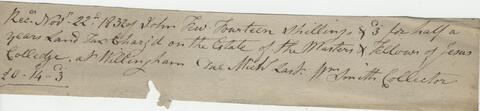 Rec.d Nov.r 22.d 1832 of John Few Fourteen Shillings & 3.d for half a
years Land Tax Charg'd on the Estate of the Masters & Fellows of Jesus
Colledge, at Willingham Due Mich.s Last. W.m Smith Collector
£0-14-3